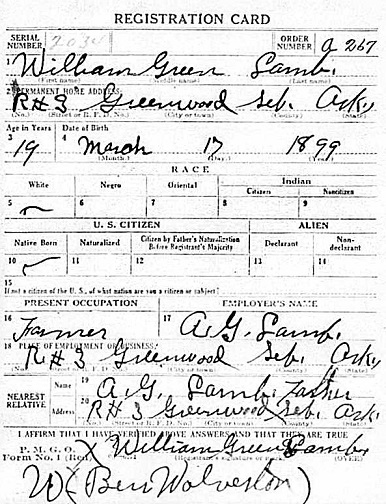 REGISTRATION CARD
SERIAL NUMBER 2034 ORDER NUMBER a 267
1 William Green Lamb.
(First name) (Middle name) (Last name)
2 PERMANENT HOME ADDRESS:
R#3 Greenwood Seb. Ark,
(No.) (Street or R. F. D. No.) (City or town) (County) (State)
Age in Years Date of Birth
3 19 4 March 17 1899
(Month.) (Day.) (Year.)
RACE
White Negro Oriental Indian
Citizen Noncitizen
5 6 7 8 9
U. S. CITIZEN ALIEN
Native Born Naturalized Citizen by Father's Naturalization Before Registrant's Majority Declarant Non-declarant
10 11 12 13 14
15
If not a citizen of the U. S., of what nation are you a citizen or subject?
PRESENT OCCUPATION EMPLOYER'S NAME
16 Farmer 17 A. G. Lamb.
18 PLACE OF EMPLOYMENT OR BUSINESS:
R#3 Greenwood Seb. Ark,
(No.) (Street or R. F. D. No.) (City or town) (County) (State)
NEAREST RELATIVE Name 19 A. G. Lamb. Father
Address 20 R#3 Greenwood Seb. Ark.
(No.) (Street or R. F. D. No.) (City or town) (County) (State)
I AFFIRM THAT I HAVE VERIFIED ABOVE ANSWERS AND THAT THEY ARE TRUE
P. M. G. O.
Form No. 1 (Red) X William Green Lamb
(Registrant's signature or mark) (OVER)
W (Ben Wolverton)